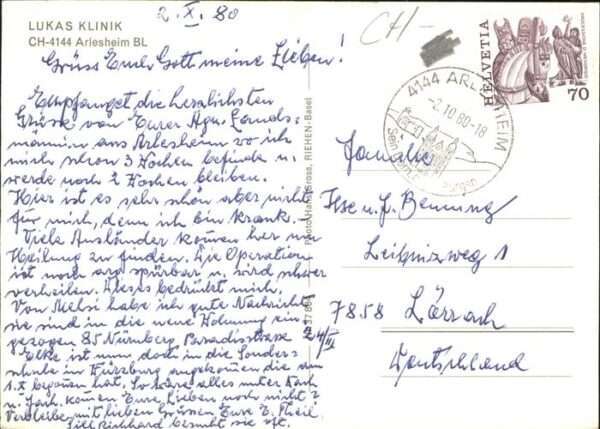 LUKAS KLINIK
CH-4144 Arlesheim BL
2. X. 80
CH-
Grüss Euch Gott meine Lieben!
Empfanget die herzlichsten
Grüsse von Eurer Lands-
männin aus Arlesheim wo ich
mich schon 3 Wochen befinde u.
werde noch 2 Wochen bleiben.
Hier ist es sehr schön aber nicht
für mich, denn ich bin krank.
Viele Ausländer kommen her um
Heilung zu finden. Die Operation
ist noch arg spürbar u. wird schwer
verheilen. Dieses bedrückt mich.
Von habe ich gute Nachricht
sie sind in die neue Wohnung ein-
gezogen 85 Nürnberg Paradisstrasse
Elke ist nun doch in die Sonder-
schule in Würzburg angekommen die am
1.X begonnen hat. So wäre alles unter Dach
u. Fach. kommen Eure Lieben noch nicht?
Verbleibe mit lieben Grüssen Eure E. Theil.
Richard besucht sie oft.
Foto Hans Gross, RIEHEN-Basel
4144 ARLESHEIM
-2.10.80-18
HELVETIA
70
Familie
Ilse u. J. Bennung
Leibnizweg 1
7858 Lörrach
Deutschland